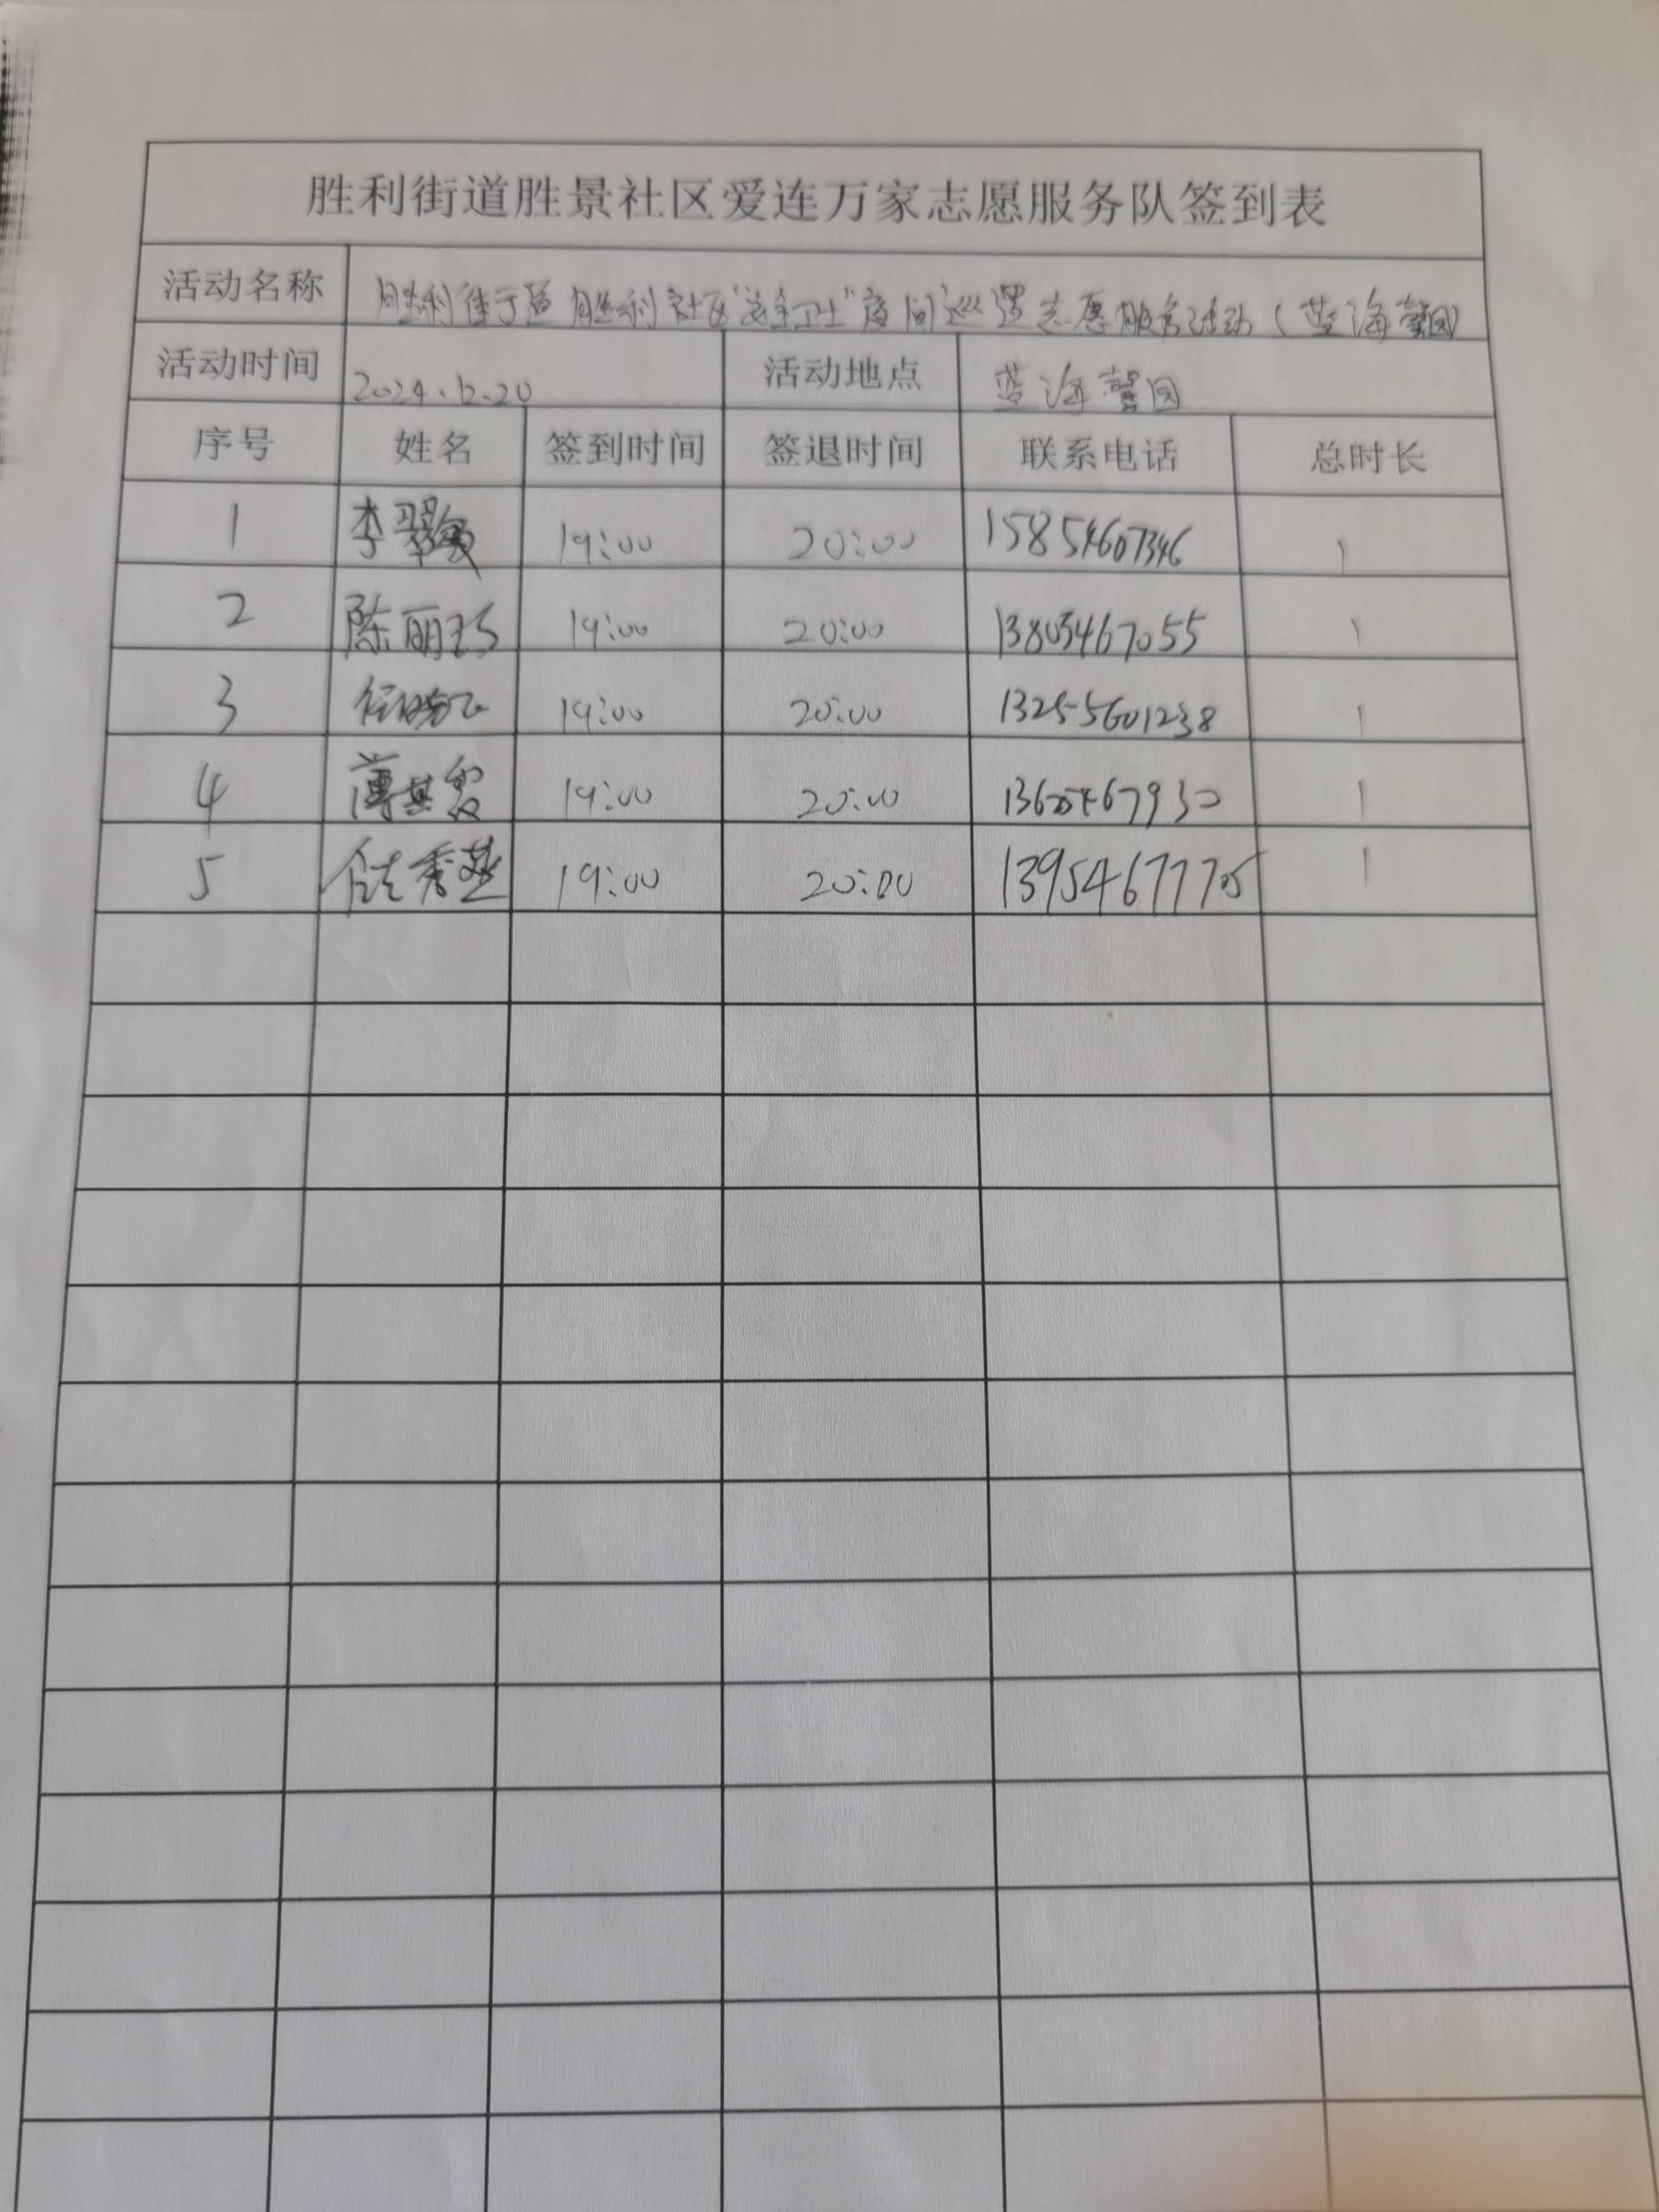 胜利街道胜景社区爱连万家志愿服务队签到表
活动名称 胜利街道胜利社区"安全卫士"夜间巡逻志愿服务活动(蓝海馨园)
活动时间 2024.12.20 活动地点 蓝海馨园
序号 姓名 签到时间 签退时间 联系电话 总时长
1 李翠敏 19:00 20:00 15854607346 1
2 陈丽 19:00 20:00 13805467055 1
3 任 19:00 20:00 13255601238 1
4 薄其 19:00 20:00 1
5 任秀燕 19:00 20:00 1